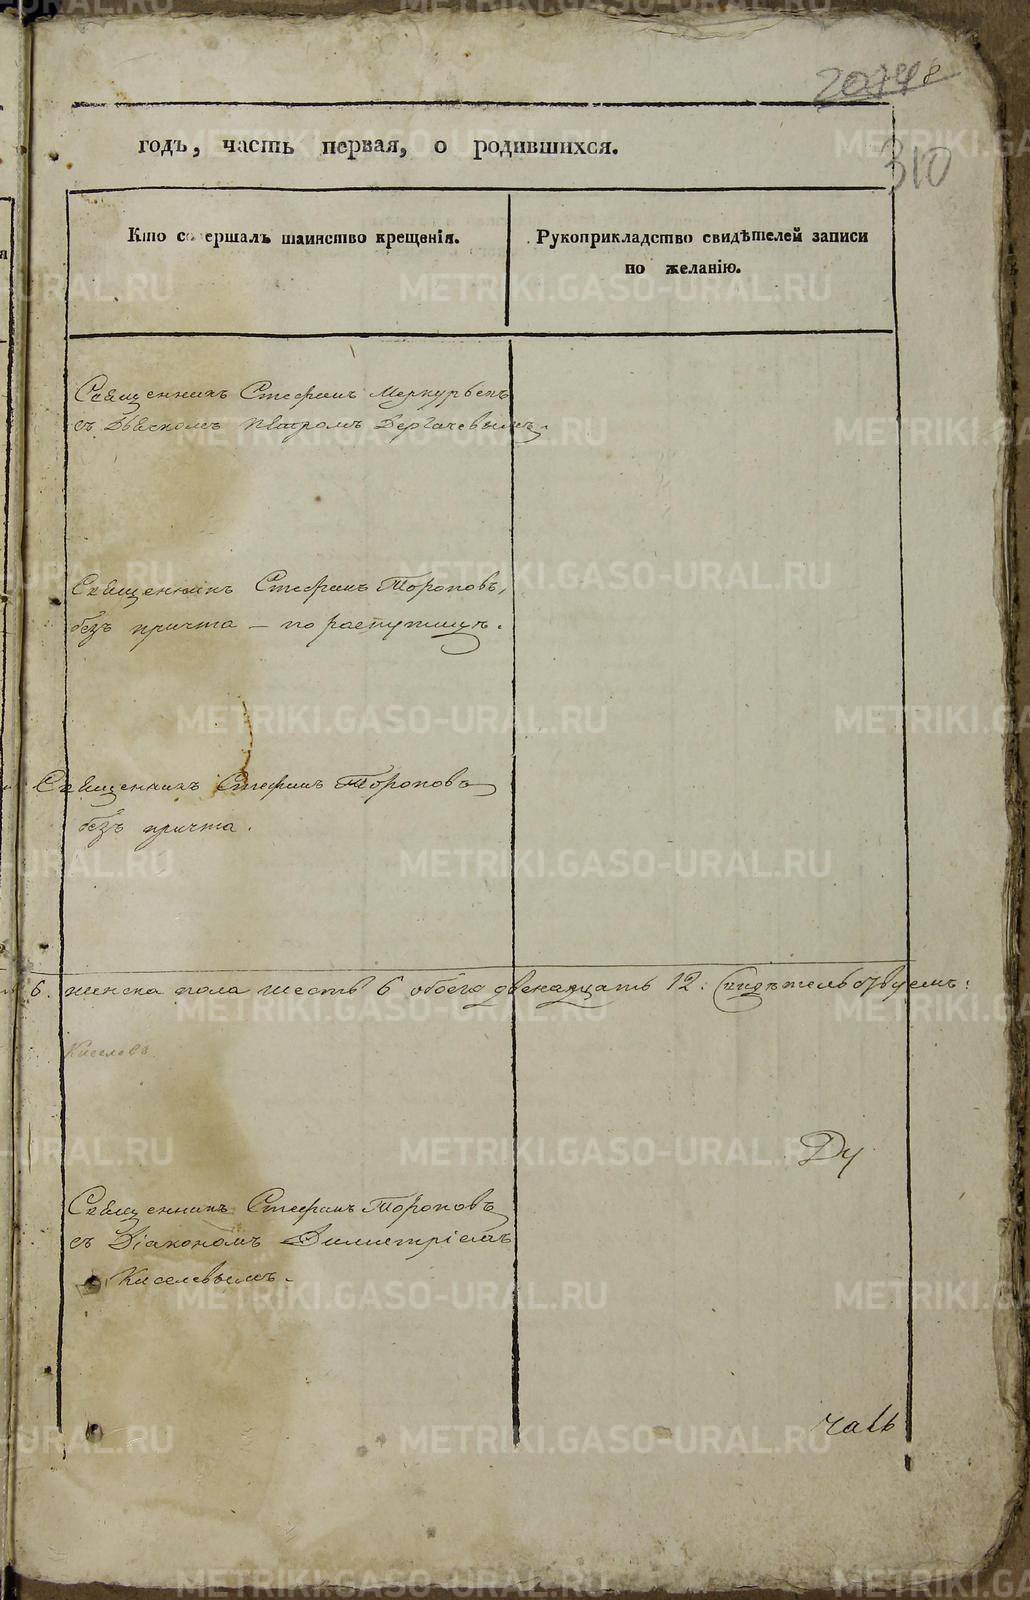 2044
8
310
годъ, часть первая, о родившихся.
Кто совершалъ таинство крещенія.
Рукоприкладство свидѣтелей записи
по желанію.
Священникъ Стефанъ Меркурьевъ
съ Дьякомъ Петромъ Дергачевымъ.
Священникъ Стефанъ Топоровъ,
безъ причта – по распутицѣ.
Священникъ Стефанъ Топоровъ
безъ причта.
6. женска пола шесть 6 обоего двенадцать 12. Свидѣтельствуемъ:
Киселевъ
Ду
Священникъ Стефанъ Топоровъ
съ Діакономъ Димитріемъ
Киселевымъ.
METRIKI.GASO-URAL.RU